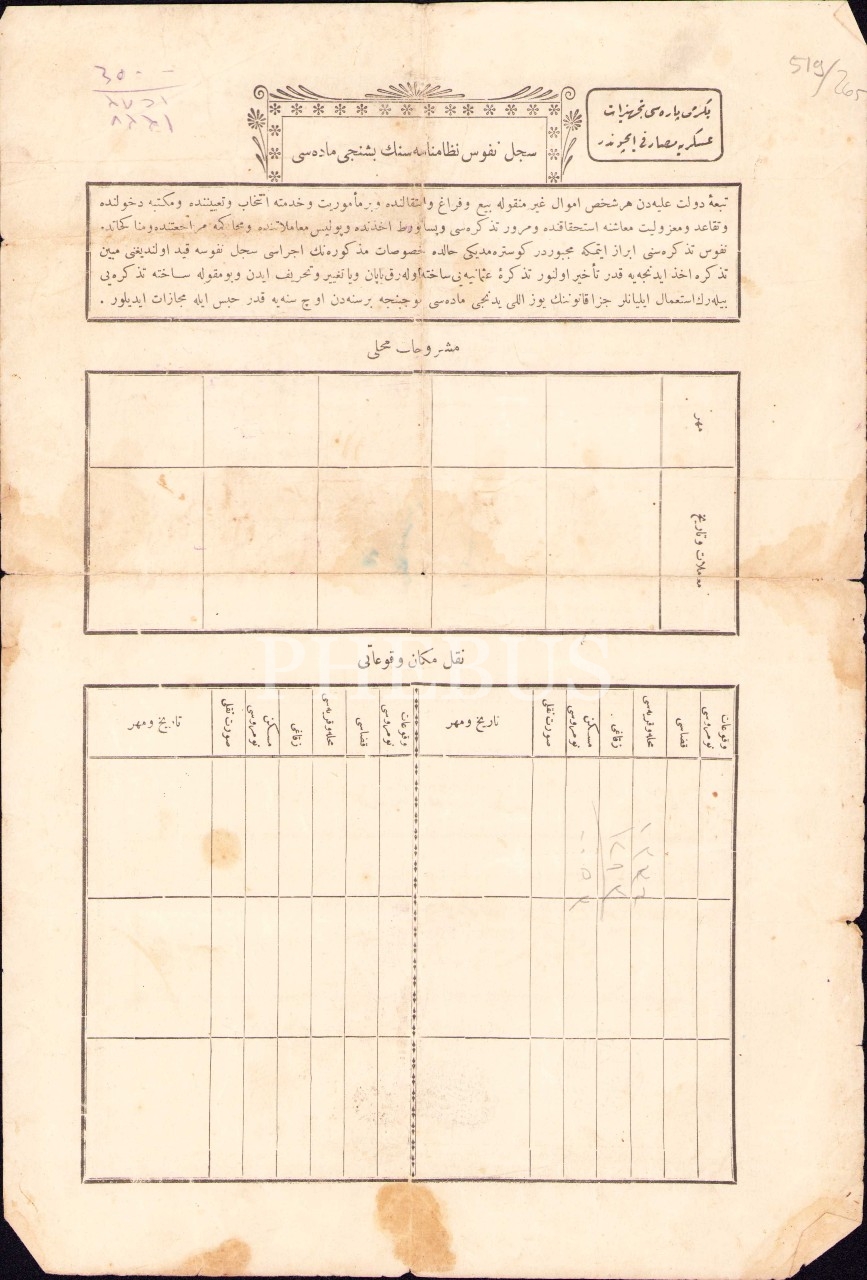 519/265
بكرمی پاره‌سی تجهیزات
عسكریه مصارفی ایچوندر
سجل نفوس نظامنامه سنك بشنجی ماده‌سی
تبعهٔ دولت علیه‌دن هر شخص اموال غیر منقوله بیع و فراغ وانتقالنده و بر مأموریت و خدمته انتخاب و تعییننده ومكتبه دخولنده
وتقاعد ومعزولیت معاشنه استحقاقنده ومرور تذكره‌سی وپساپورط اخذنده وپولیس معاملاتنده ومحاكمه مراجعتنده ومناكحاتده
نفوس تذكره‌سنی ابراز ایتمكه مجبوردر كوستره‌مدیكی حالده خصوصات مذكوره‌نك اجراسی سجل نفوسه قید اولندیغنی مبین
تذكره اخذ ایدنجه‌یه قدر تأخیر اولنور تذكرهٔ عثمانیه‌یی ساخته اوله‌رق یاپان ویا تغییر وتحریف ایدن وبومقوله ساخته تذكره‌یی
بیله‌رك استعمال ایلیانلر جزا قانوننك یوز اللی یدنجی ماده‌سی موجبنجه برسنه‌دن اوچ سنه‌یه قدر حبس ایله مجازات ایدیلور .
مشروحات محلی
مهر
معاملات وتاریخ
نقل مكان وقوعاتی
وقوعات نومروسی
قضاسی
محله وقریه‌سی
زقاغی
مسكن نومروسی
صورت نقلی
تاریخ ومهر
وقوعات نومروسی
قضاسی
محله وقریه‌سی
زقاغی
مسكن نومروسی
صورت نقلی
تاریخ ومهر
PHEBUS